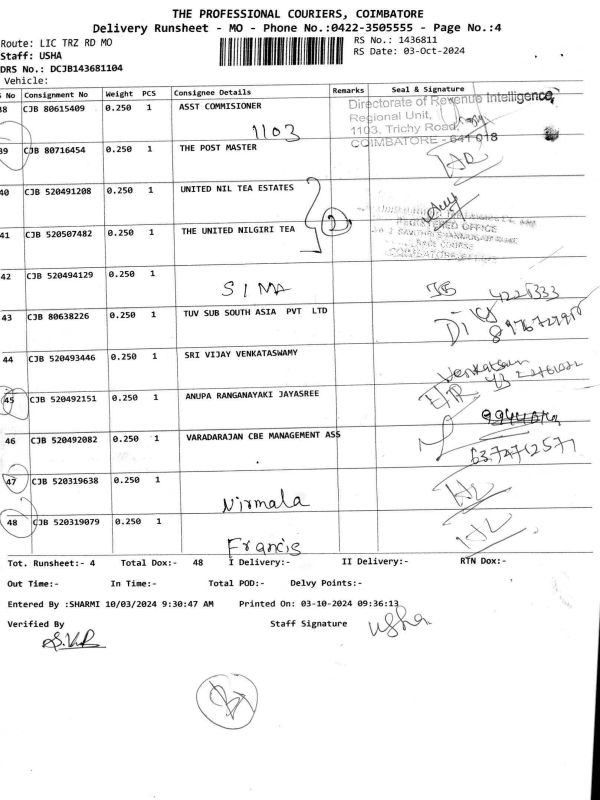 THE PROFESSIONAL COURIERS, COIMBATORE
Delivery Runsheet - MO - Phone No.:0422-3505555 - Page No.:4
Route: LIC TRZ RD MO
RS No.: 1436811
Staff: USHA
RS Date: 03-Oct-2024
DRS No.: DCJB143681104
Vehicle:
S No Consignment No Weight PCS Consignee Details Remarks Seal & Signature
38 CJB 80615409 0.250 1 ASST COMMISIONER
1103
Directorate of Revenue Intelligence,
Regional Unit,
1103, Trichy Road,
COIMBATORE - 641 018
39 CJB 80716454 0.250 1 THE POST MASTER
40 CJB 520491208 0.250 1 UNITED NIL TEA ESTATES
2
REGISTERED OFFICE
RACE COURSE
41 CJB 520507482 0.250 1 THE UNITED NILGIRI TEA
42 CJB 520494129 0.250 1
SIMA
43 CJB 80638226 0.250 1 TUV SUB SOUTH ASIA PVT LTD
44 CJB 520493446 0.250 1 SRI VIJAY VENKATASWAMY
45 CJB 520492151 0.250 1 ANUPA RANGANAYAKI JAYASREE
46 CJB 520492082 0.250 1 VARADARAJAN CBE MANAGEMENT ASS
6374712571
47 CJB 520319638 0.250 1
Nirmala
48 CJB 520319079 0.250 1
Francis
Tot. Runsheet:- 4 Total Dox:- 48 I Delivery:- II Delivery:- RTN Dox:-
Out Time:- In Time:- Total POD:- Delvy Points:-
Entered By :SHARMI 10/03/2024 9:30:47 AM Printed On: 03-10-2024 09:36:13
Verified By Staff Signature usha